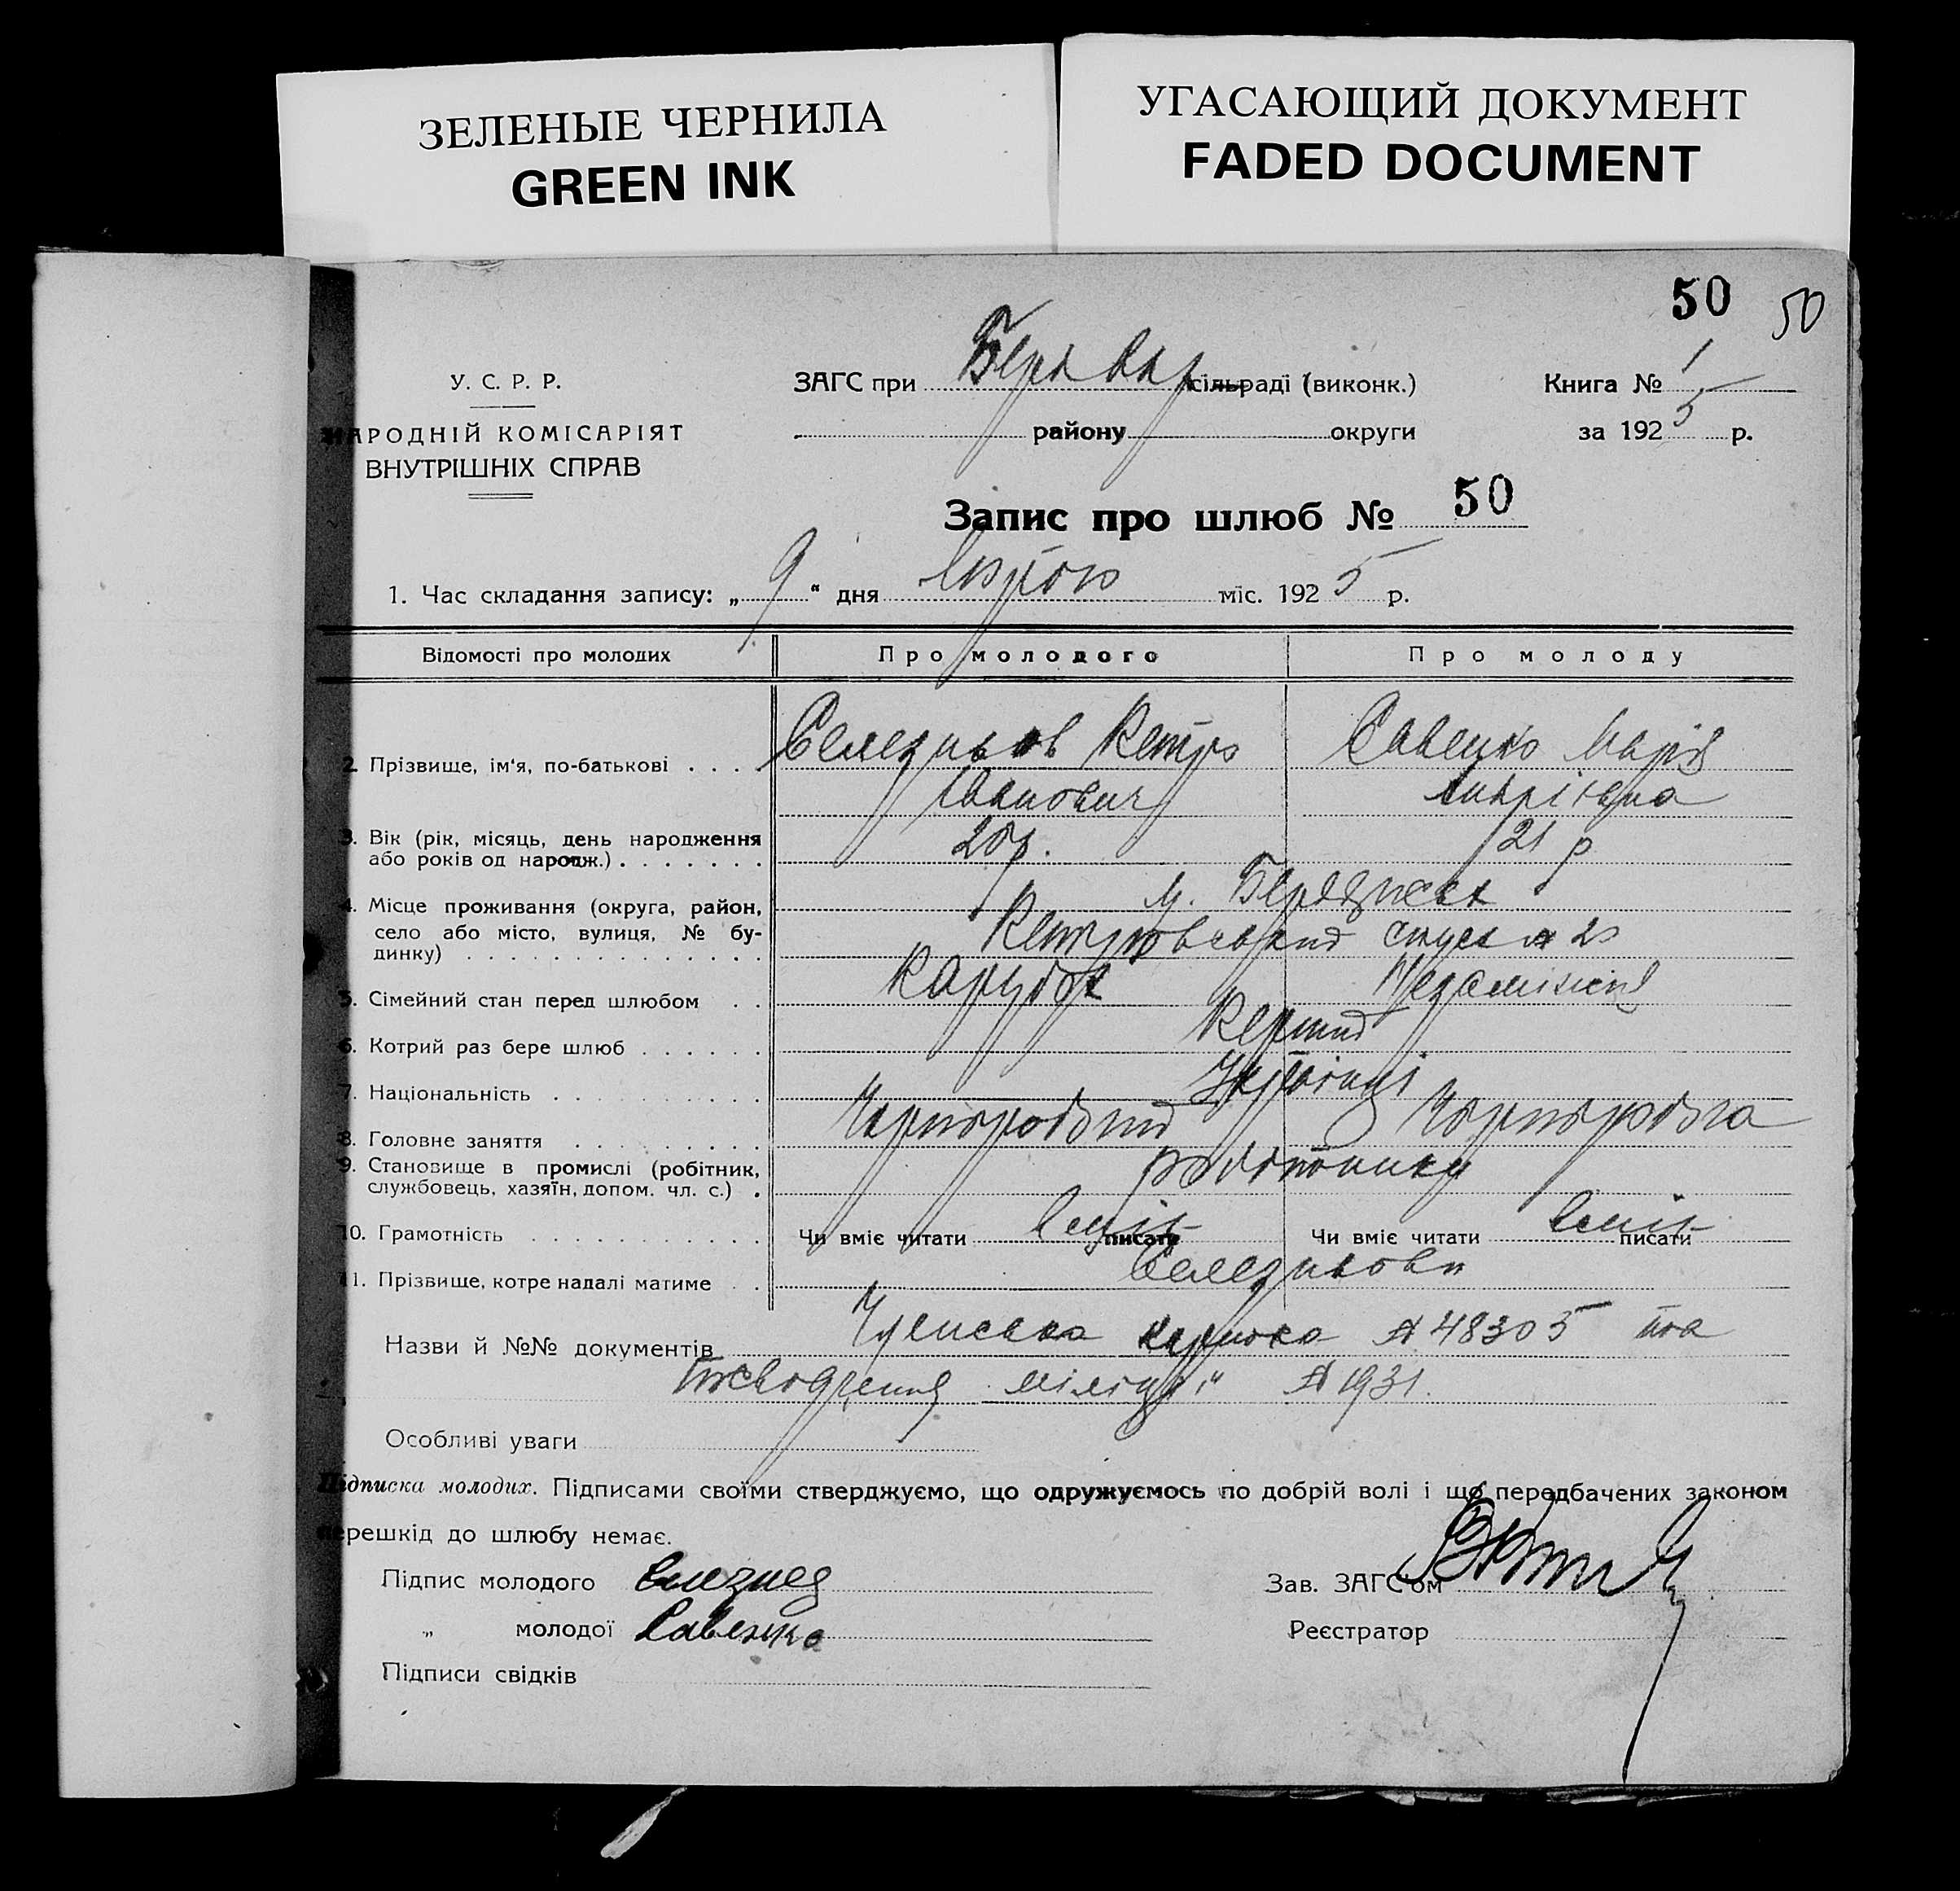 ЗЕЛЕНЫЕ ЧЕРНИЛА
GREEN INK
УГАСАЮЩИЙ ДОКУМЕНТ
FADED DOCUMENT
50 50
У. С. Р. Р.
НАРОДНІЙ КОМІСАРІЯТ
ВНУТРІШНІХ СПРАВ
ЗАГС при сільраді (виконк.)
району округи
Книга № 1
за 1925 р.
Запис про шлюб № 50
1. Час складання запису: „9“ дня міс. 1925 р.
Відомості про молодих Про молодого Про молоду
2. Прізвище, ім'я, по-батькові Селезньов Петро Савенко Марія
Іванович Андріівна
3. Вік (рік, місяць, день народження 20 р. 21 р
або років од народж.)
м. Бердянськ
4. Місце проживання (округа, район,
село або місто, вулиця, № бу- Петровський спуск № 20
динку)
5. Сімейний стан перед шлюбом Парубок Незаміжня
6. Котрий раз бере шлюб Перший
7. Національність Українці
8. Головне заняття Чорноробчий Чорноробча
9. Становище в промислі (робітник, робітники
службовець, хазяїн, допом. чл. с.)
10. Грамотність Чи вміє читати писати вміє Чи вміє читати писати вміє
11. Прізвище, котре надалі матиме Селезньови
Назви й №№ документів Членська картка № 48305 та
посвідчення міліції № 1931.
Особливі уваги
Підписка молодих. Підписами своїми стверджуємо, що одружуємось по добрій волі і що передбачених законом
перешкід до шлюбу немає.
Підпис молодого
„ молодої Савенко
Підписи свідків
Зав. ЗАГС'ом
Реєстратор